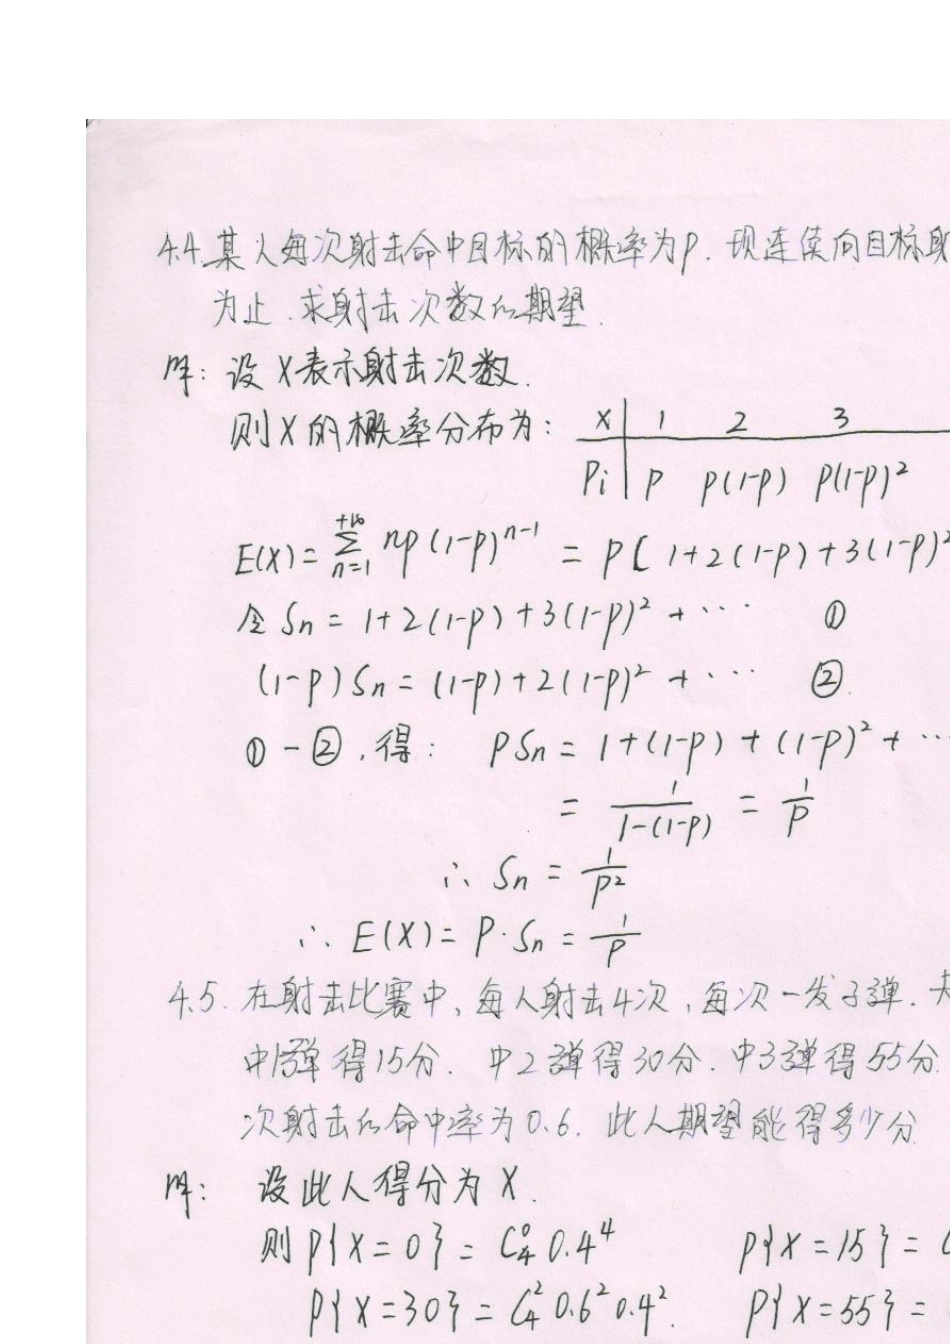 4.4.某人每次射击命中目标的概率为p.现连续向目标射
为止.求射击次数的期望.
解:设X表示射击次数.
则X的概率分布为: X 1 2 3
Pi p p(1-p) p(1-p)²
E(X)=∑(n=1,+∞) np(1-p)^(n-1) = p[1+2(1-p)+3(1-p)²
令Sn=1+2(1-p)+3(1-p)²+… ①
(1-p)Sn=(1-p)+2(1-p)²+… ②.
①-②,得: pSn=1+(1-p)+(1-p)²+…
=1/(1-(1-p))=1/p
∴Sn=1/p²
∴E(X)=p·Sn=1/p
4.5.在射击比赛中,每人射击4次,每次一发子弹.
中1弹得15分.中2弹得30分.中3弹得55分.
次射击的命中率为0.6.此人期望能得多少分
解: 设此人得分为X.
则P{X=0}=C₄⁰0.4⁴ P{X=15}=
P{X=30}=C₄²0.6²0.4². P{X=55}=